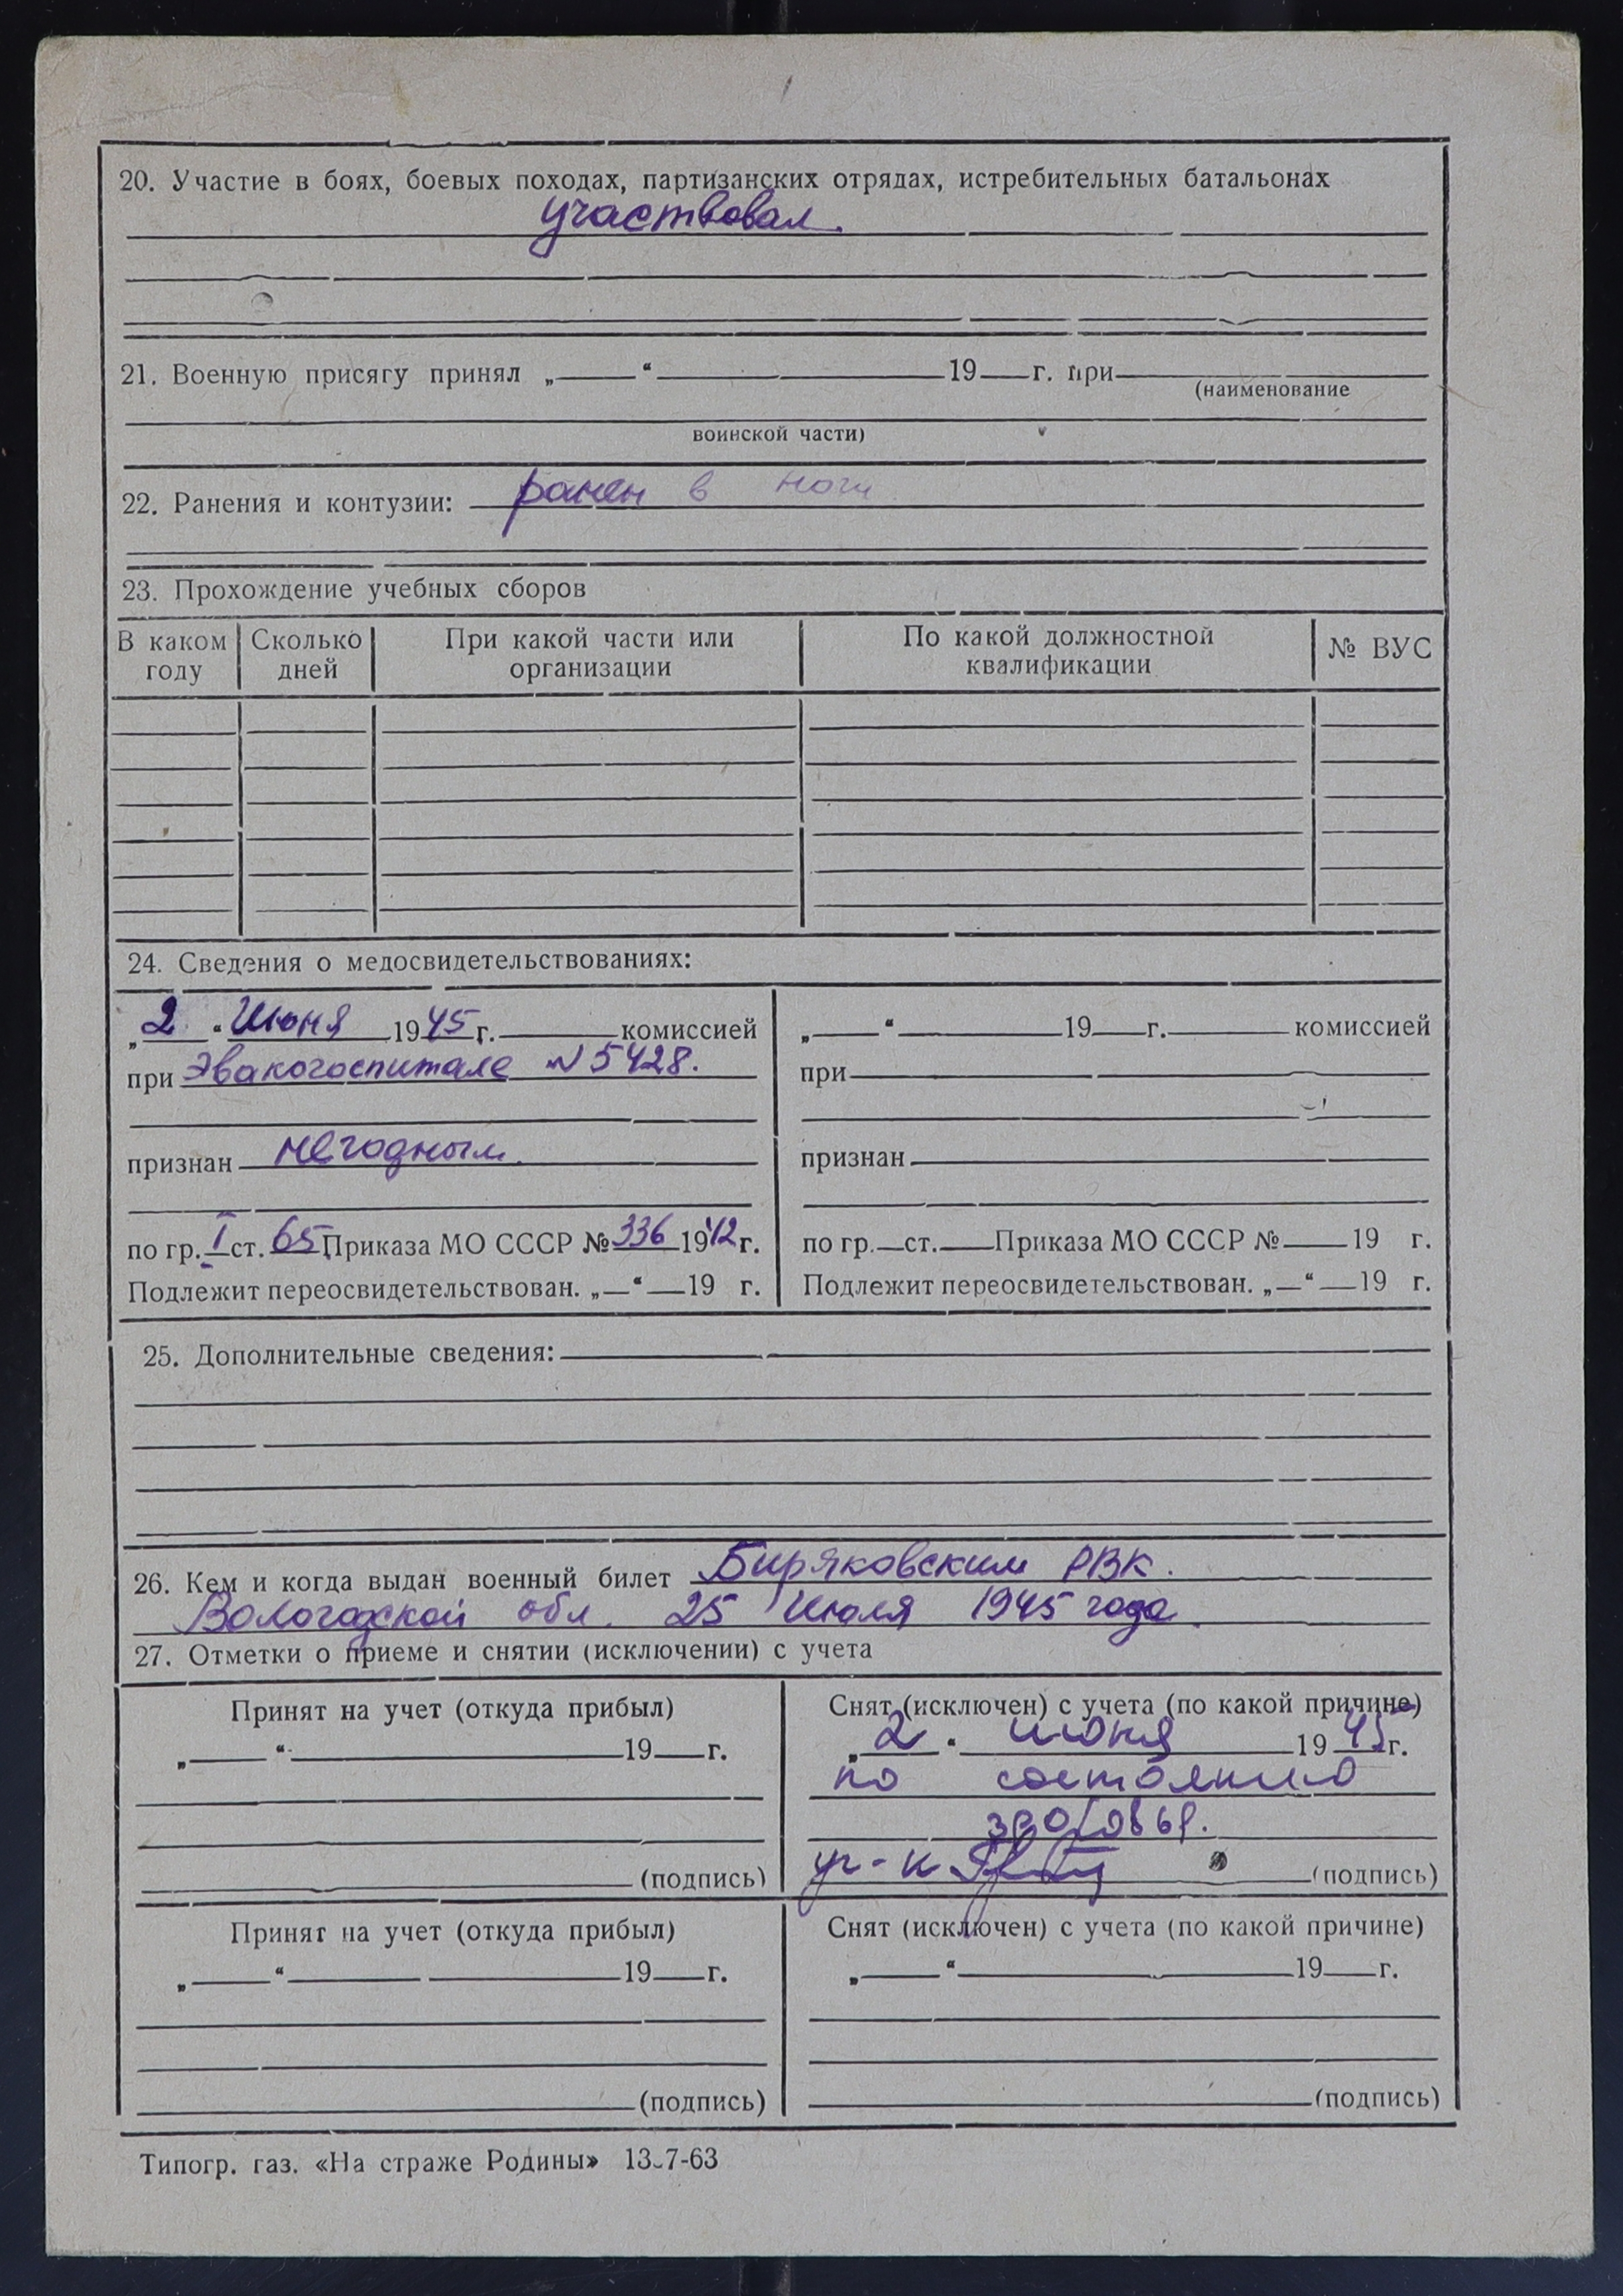 20. Участие в боях, боевых походах, партизанских отрядах, истребительных батальонах
участвовал.
21. Военную присягу принял „ “ 19 г. при
(наименование
воинской части)
22. Ранения и контузии: ранен в ноги
23. Прохождение учебных сборов
В каком году Сколько дней При какой части или организации По какой должностной квалификации № ВУС
24. Сведения о медосвидетельствованиях:
„2“ Июня 1945 г. комиссией
при Эвакогоспитале N 5428.
признан негодным.
по гр. I ст. 65 Приказа МО СССР № 336 1942 г.
Подлежит переосвидетельствован. „ “ 19 г.
„ “ 19 г. комиссией
при
признан
по гр. ст. Приказа МО СССР № 19 г.
Подлежит переосвидетельствован. „ “ 19 г.
25. Дополнительные сведения:
26. Кем и когда выдан военный билет Биряковским РВК.
Вологодской обл. 25 Июля 1945 года.
27. Отметки о приеме и снятии (исключении) с учета
Принят на учет (откуда прибыл)
„ “ 19 г.
(подпись)
Снят (исключен) с учета (по какой причине)
„2“ июня 1945 г.
по состоянию
(подпись)
Принят на учет (откуда прибыл)
„ “ 19 г.
(подпись)
Снят (исключен) с учета (по какой причине)
„ “ 19 г.
(подпись)
Типогр. газ. «На страже Родины» 13-7-63